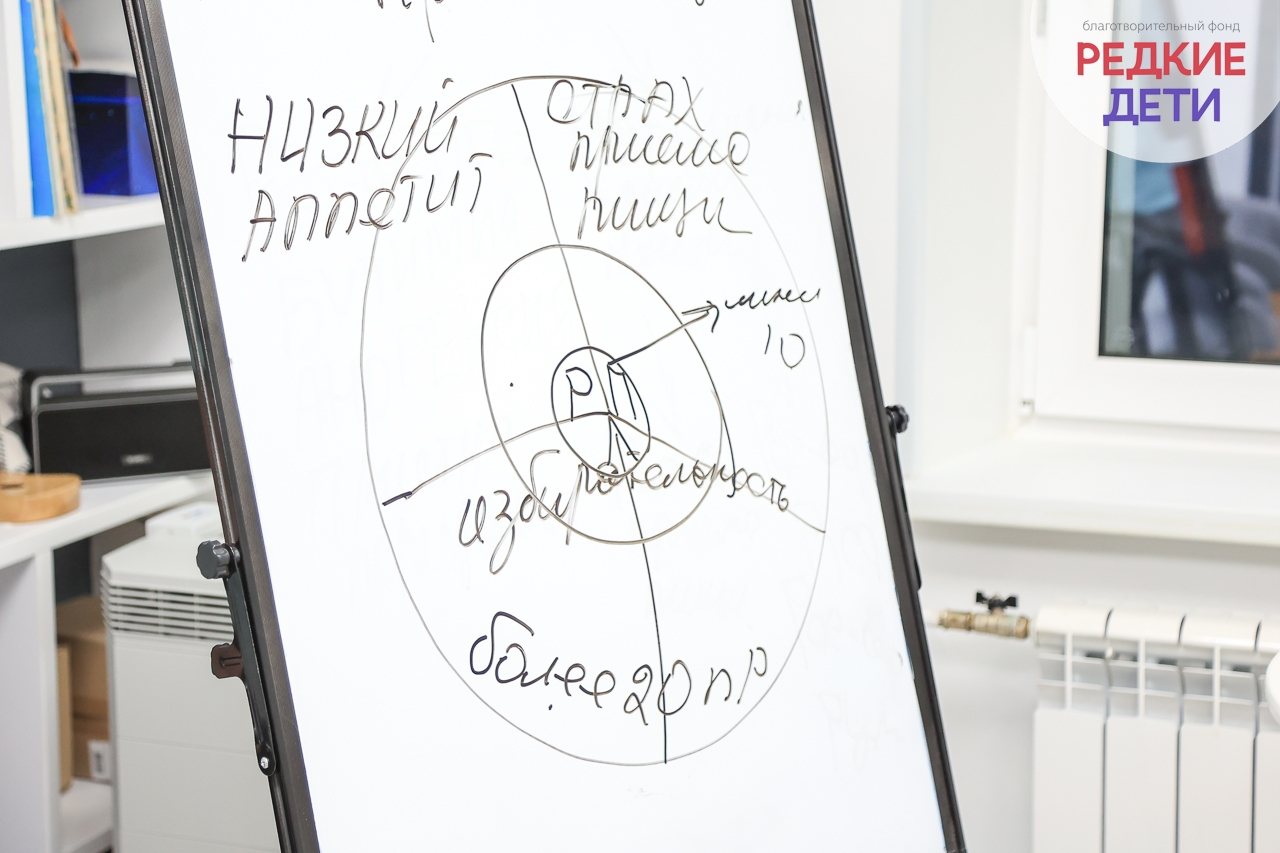 благотворительный фонд
РЕДКИЕ
ДЕТИ
НИЗКИЙ
АППЕТИТ
СТРАХ
приема
пищи
10
РП
избирательность
более 20 пр